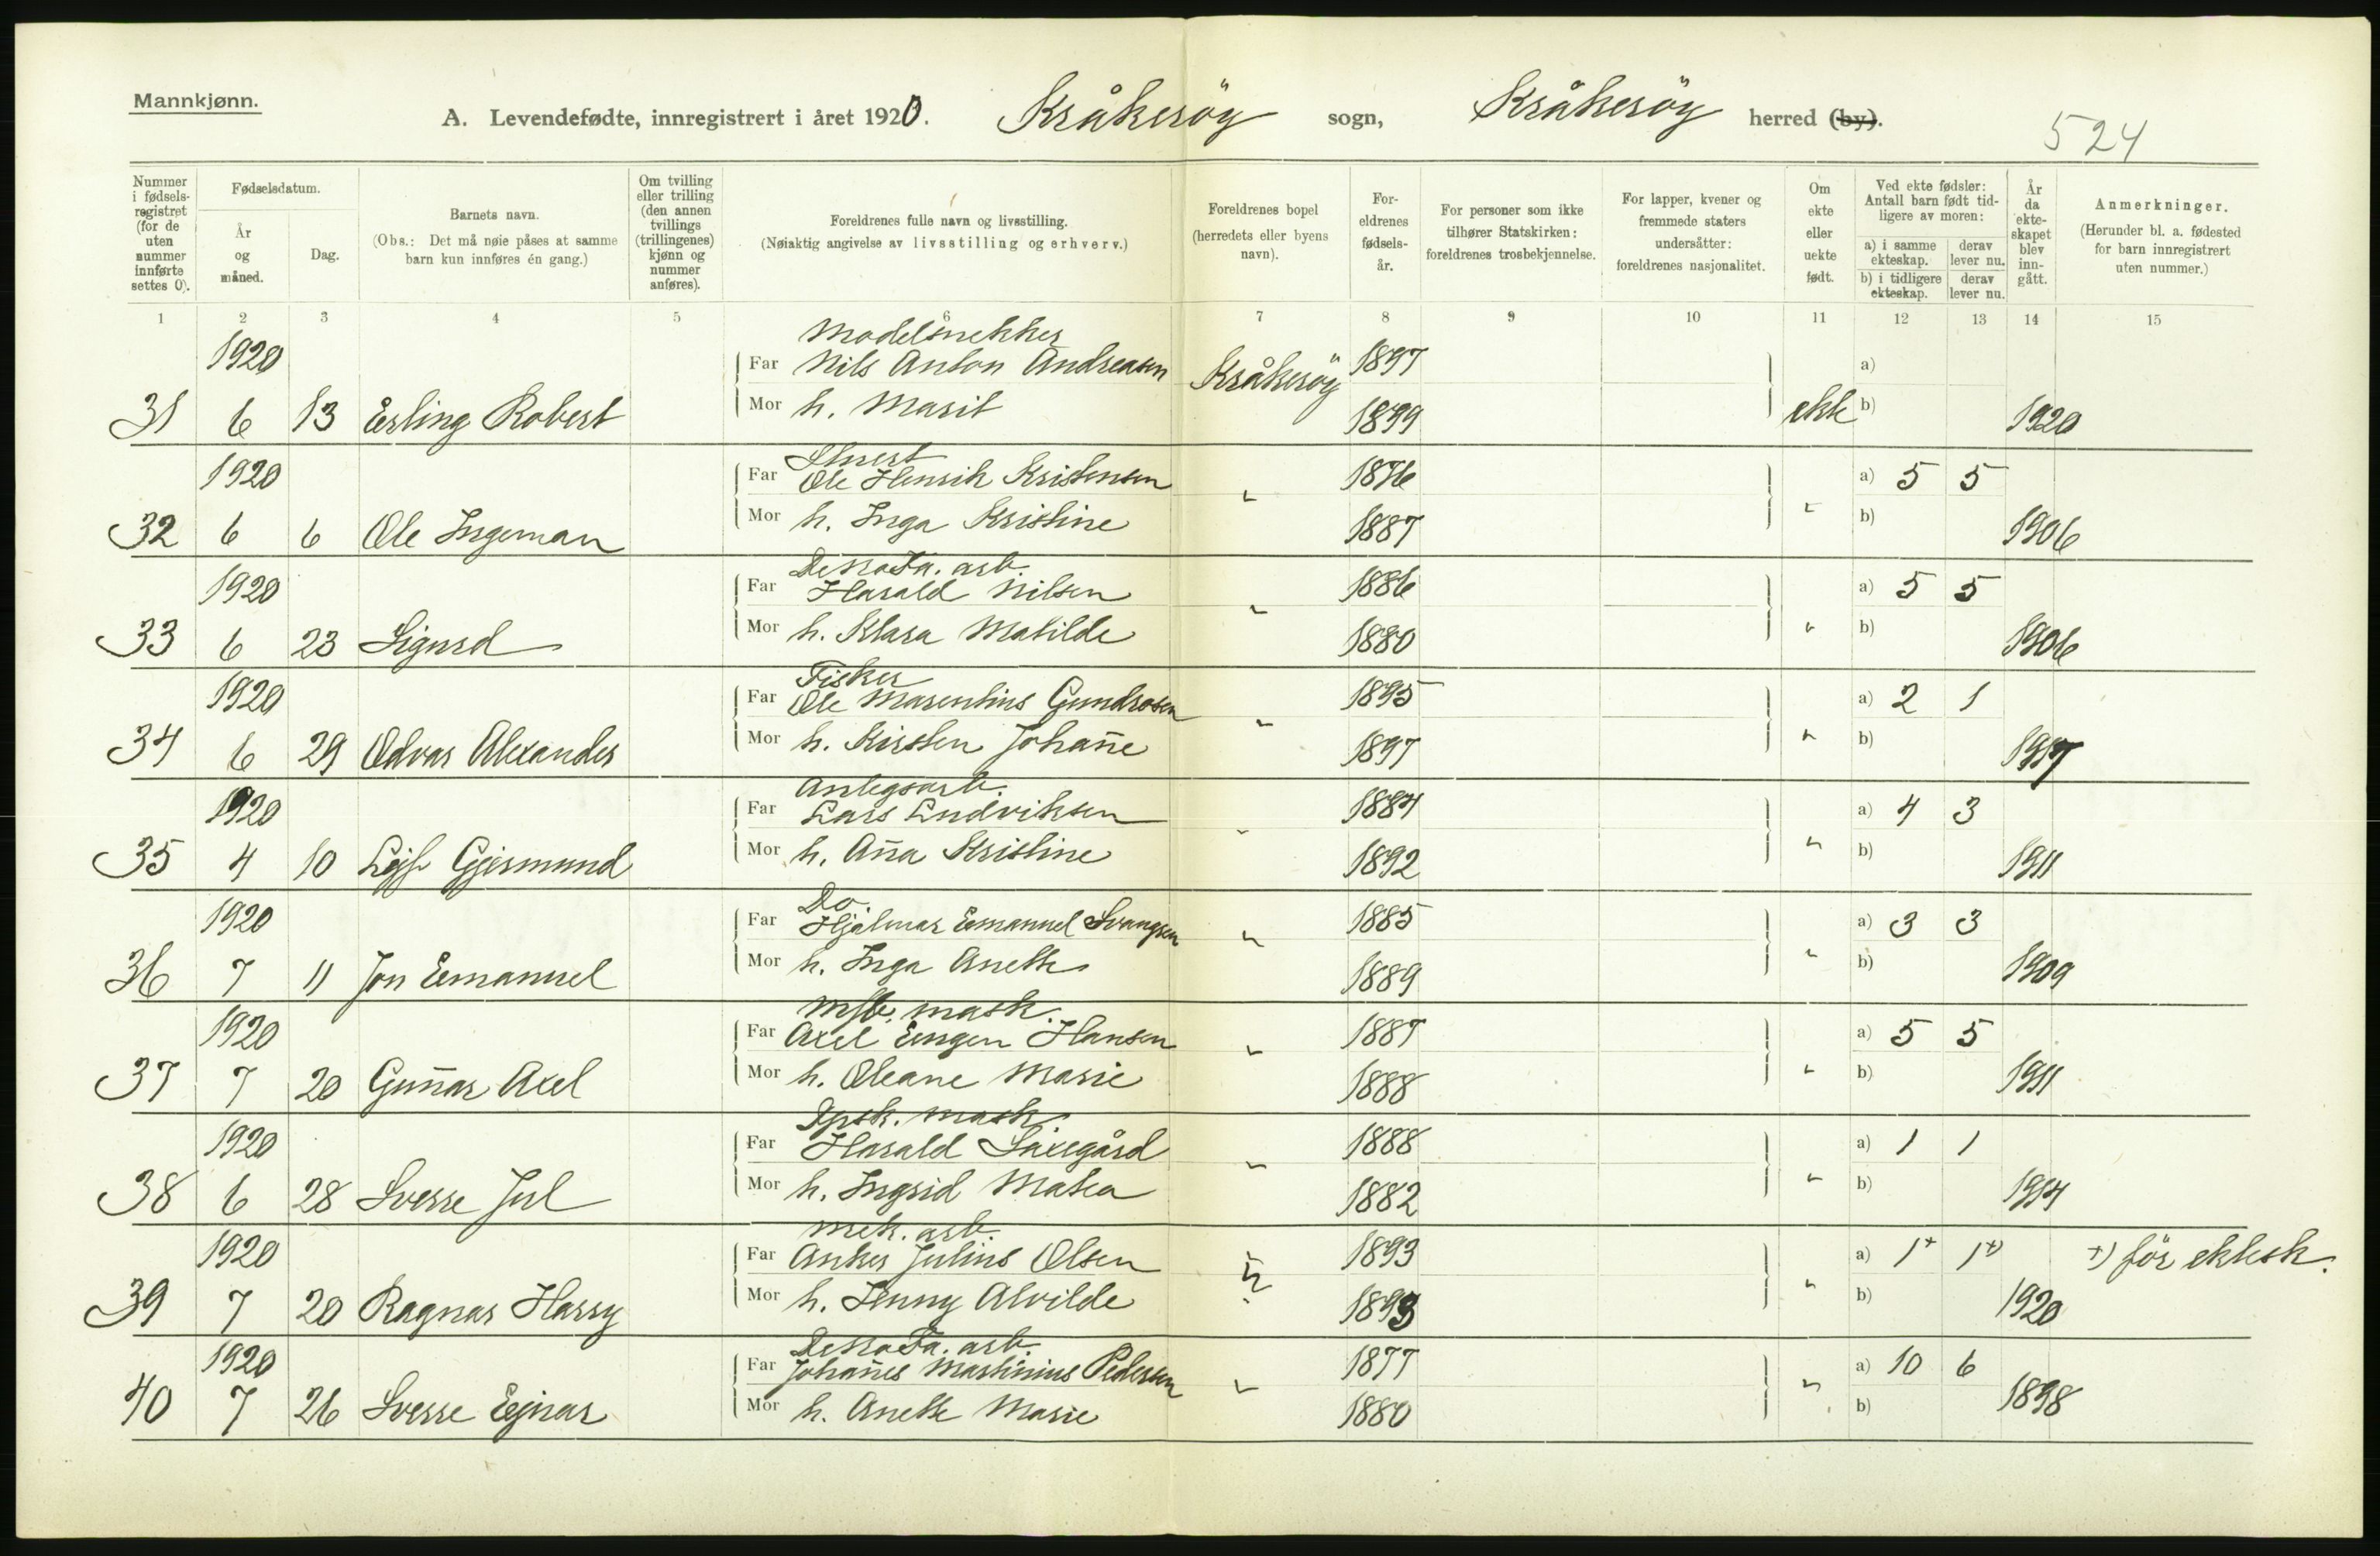 Mannkjønn.
A. Levendefødte, innregistrert i året 1920. Kråkeröy sogn, Kråkeröy herred (by).
524
Nummer i fødsels-registret (for de uten nummer innførte settes 0).
Fødselsdatum.
År og måned.
Dag.
Barnets navn.
(Obs.: Det må nøie påses at samme barn kun innføres én gang.)
Om tvilling eller trilling (den annen tvillings (trillingenes) kjønn og nummer anføres).
Foreldrenes fulle navn og livsstilling.
(Nøiaktig angivelse av livsstilling og erhverv.)
Foreldrenes bopel (herredets eller byens navn).
For-eldrenes fødsels-år.
For personer som ikke tilhører Statskirken: foreldrenes trosbekjennelse.
For lapper, kvener og fremmede staters undersåtter: foreldrenes nasjonalitet.
Om ekte eller uekte født.
Ved ekte fødsler: Antall barn født tid-ligere av moren:
a) i samme ekteskap. derav lever nu.
b) i tidligere ekteskap. derav lever nu.
År da ekte-skapet blev inn-gått.
Anmerkninger.
(Herunder bl. a. fødested for barn innregistrert uten nummer.)
1 2 3 4 5 6 7 8 9 10 11 12 13 14 15
Modelsnekker
1920 Far Nils Anton Andreasen Kråkeröy 1897 a)
31 6 13 Erling Robert Mor h. Marit 1899 ekte b) 1920
1920 Far Ole Henrik Kristensen " 1876 a) 5 5
32 6 6 Ole Ingeman Mor h. Inga Kristine 1887 " b) 1906
arb.
1920 Far Harald Nilsen " 1886 a) 5 5
33 6 23 Sigurd Mor h. Klara Matilde 1880 " b) 1906
Fisker
1920 Far Ole Marentius Gundrosen " 1895 a) 2 1
34 6 29 Odvar Alexander Mor h. Kirsten Johan̄e 1897 " b) 1917
Anlegsarb.
1920 Far Lars Ludviksen " 1884 a) 4 3
35 4 10 Leif Gjermund Mor h. An̄a Kristine 1892 " b) 1911
Do.
1920 Far Hjalmar Emanuel Svangsen " 1885 a) 3 3
36 7 11 Jon Emanuel Mor h. Inga Anette 1889 " b) 1909
mask.
1920 Far Axel Eugen Hansen " 1887 a) 5 5
37 7 20 Gun̄ar Axel Mor h. Oleane Marie 1888 " b) 1911
mask.
1920 Far Harald Saxegård " 1888 a) 1 1
38 6 28 Sverre Jul Mor h. Ingrid Matea 1882 " b) 1914
Mek. arb.
1920 Far Anker Julius Olsen 1893 a) 1+ 1+) +) för ektesk.
39 7 20 Ragnar Harry Mor h. Jenny Alvilde 1893 " b) 1920
arb.
1920 Far Johan̄es Martinius Pedersen " 1877 a) 10 6
40 7 26 Sverre Ejnar Mor h. Anette Marie 1880 " b) 1898